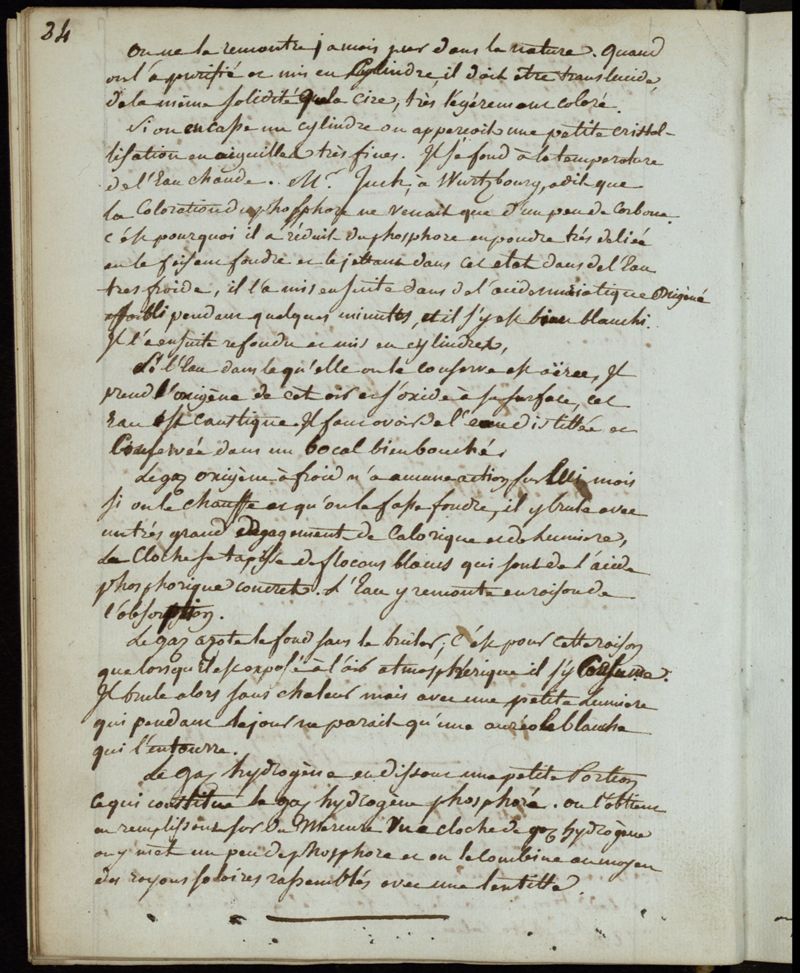 34
On ne la remontre jamais pur dans la nature. Quand
on l'a purifié et mis en Cylindre il doit être translucide,
de la même solidité que la cire, très légèrement coloré.
Si on en casse un cylindre on apperçoit une petite cristal-
lisation en aiguilles très fines. Il se fond à la temperature
de l'Eau chaude. Mr. Juch, à Wurtzbourg, a dit que
la Coloration du phosphore ne venait que d'un peu de Carbone.
c'est pourquoi il a réduit du phosphore en poudre très deliée
en le faisant fondre et le jettant dans cet etat dans de l'Eau
tres froide, il l'a mis ensuite dans de l'acide muriatique Oxigéné
affaibli pendant quelques minutes, et il s'y est bien blanchi.
Il l'a ensuite refondu et mis en cylindres,
Si l'Eau dans laqu'elle on le conserve est aërée, Il
prend l'oxigène de cet air et s'oxide à sa surface, cet
Eau est caustique. Il faut avoir de l'eau distillée et
Conservée dans un bocal bien bouché.
Le gaz oxigène à froid n'a aucune action sur lui mais
si on le chauffe et qu'on le fasse fondre, il y brule avec
un très grand dégagement de Calorique et de lumiere,
La Cloche se tapisse de flocons blancs qui sont de l'acide
phosphorique concret. L'Eau y remonte en raison de
l'absorption.
Le gaz azote le fond sans le bruler; c'est pour cette raison
que lorsqu'il est exposé à l'air atmosphérique il s'y Consume.
Il brule alors sans chaleur mais avec une petite lumiere
qui pendant le jour ne parait qu'une auréole blanche
qui l'entourre.
Le gaz hydrogène en dissout une petite Portion
ce qui constitue le gaz hydrogène phosphoré. On l'obtient
en remplissant sur du Mercure une cloche de gaz hydrogène
on y met un peu de phosphore et on le combine au moyen
des rayons solaires rassemblés avec une lentille.